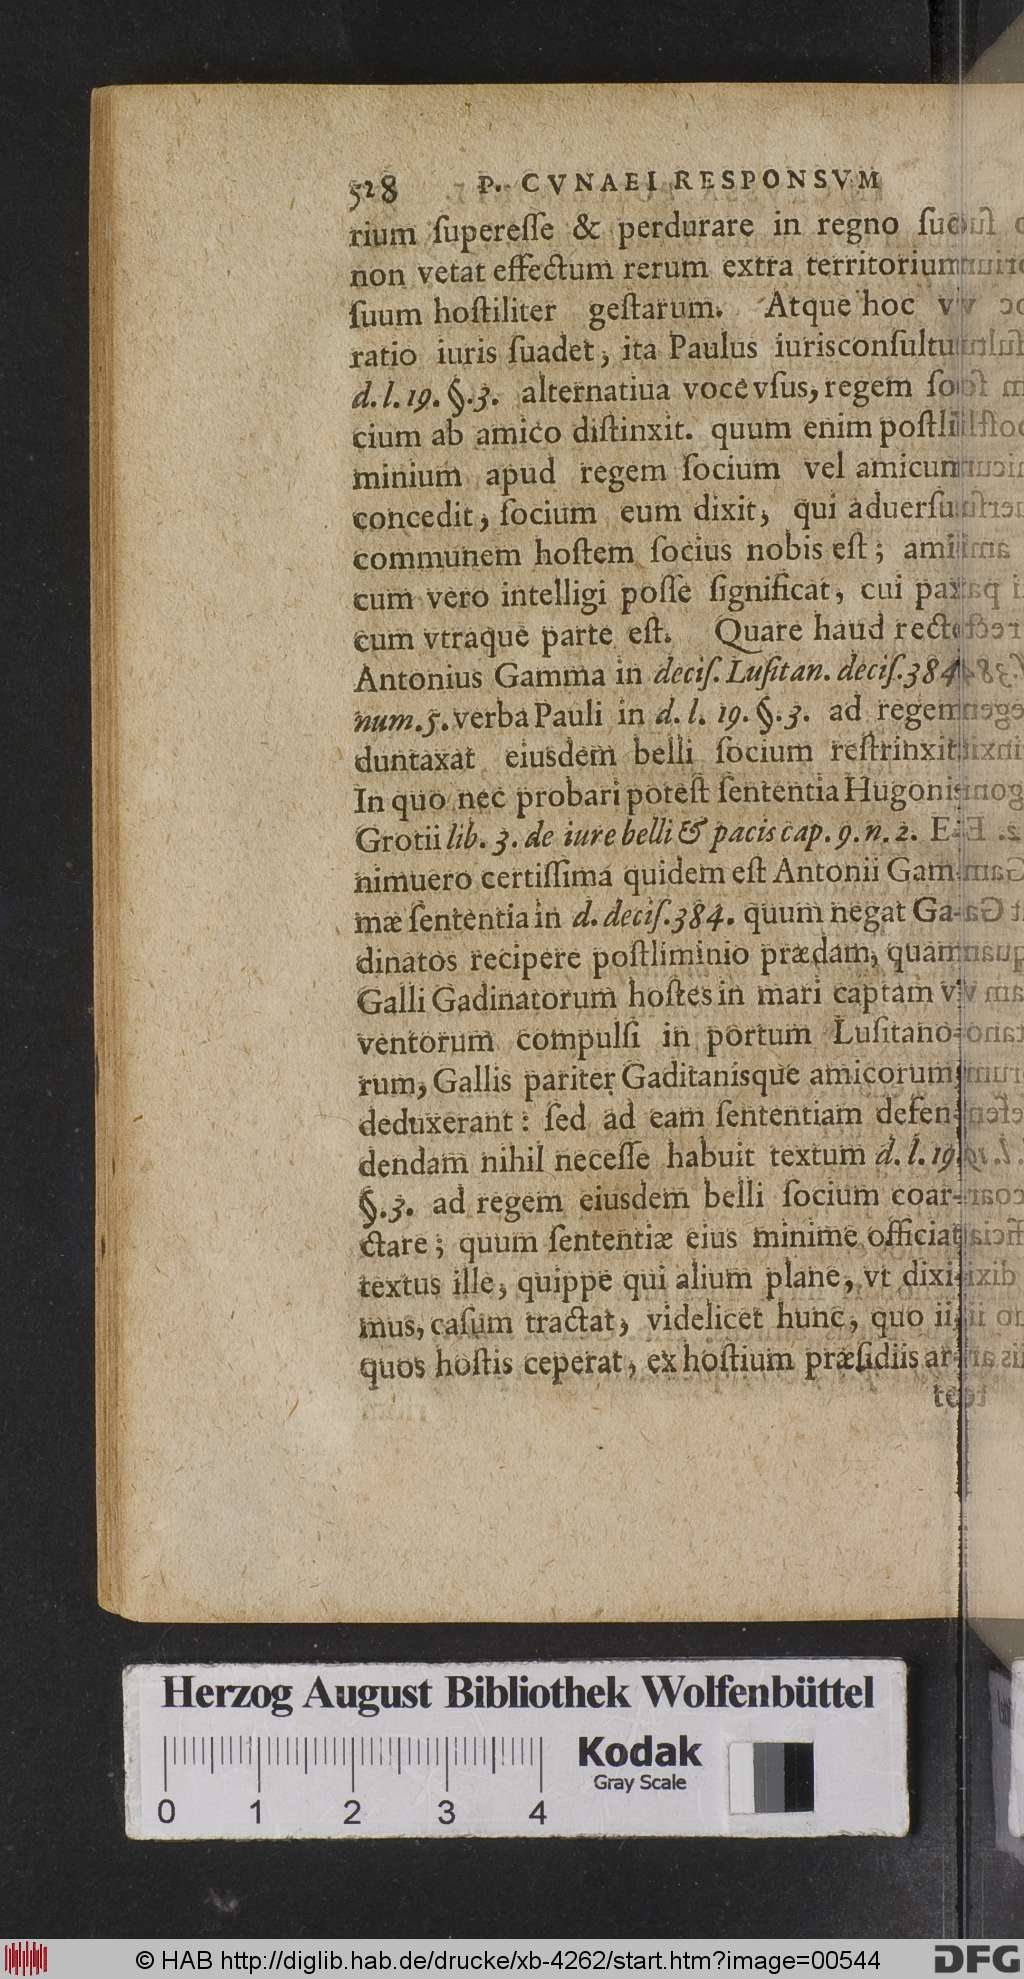 528 P. CVNAEI RESPONSVM
rium ſupereſſe & perdurare in regno ſuo
non vetat effectum rerum extra territorium
ſuum hoſtiliter geſtarum. Atque hoc vt
ratio iuris ſuadet, ita Paulus iurisconſultus
d. l. 19. §. 3. alternatiua voce vſus, regem ſo-
cium ab amico diſtinxit. quum enim poſtli-
minium apud regem ſocium vel amicum
concedit, ſocium eum dixit, qui aduerſus
communem hoſtem ſocius nobis eſt; ami-
cum vero intelligi poſſe ſignificat, cui pax
cum vtraque parte eſt. Quare haud recte
Antonius Gamma in deciſ. Luſitan. deciſ. 384
num. 5. verba Pauli in d. l. 19. §. 3. ad regem
duntaxat eiusdem belli ſocium reſtrinxit.
In quo nec probari poteſt ſententia Hugonis
Grotii lib. 3. de iure belli & pacis cap. 9. n. 2. E-
nimuero certiſſima quidem eſt Antonii Gam-
mæ ſententia in d. deciſ. 384. quum negat Ga-
dinatos recipere poſtliminio prædam, quam
Galli Gadinatorum hoſtes in mari captam vi
ventorum compulſi in portum Luſitano-
rum, Gallis pariter Gaditanisque amicorum,
deduxerant: ſed ad eam ſententiam defen-
dendam nihil neceſſe habuit textum d. l. 19.
§. 3. ad regem eiusdem belli ſocium coar-
ctare; quum ſententiæ eius minime officiat
textus ille, quippe qui alium plane, vt dixi-
mus, caſum tractat, videlicet hunc, quo ii,
quos hoſtis ceperat, ex hoſtium præſidiis ar-
Herzog August Bibliothek Wolfenbüttel
Kodak
Gray Scale
0 1 2 3 4
© HAB http://diglib.hab.de/drucke/xb-4262/start.htm?image=00544
DFG